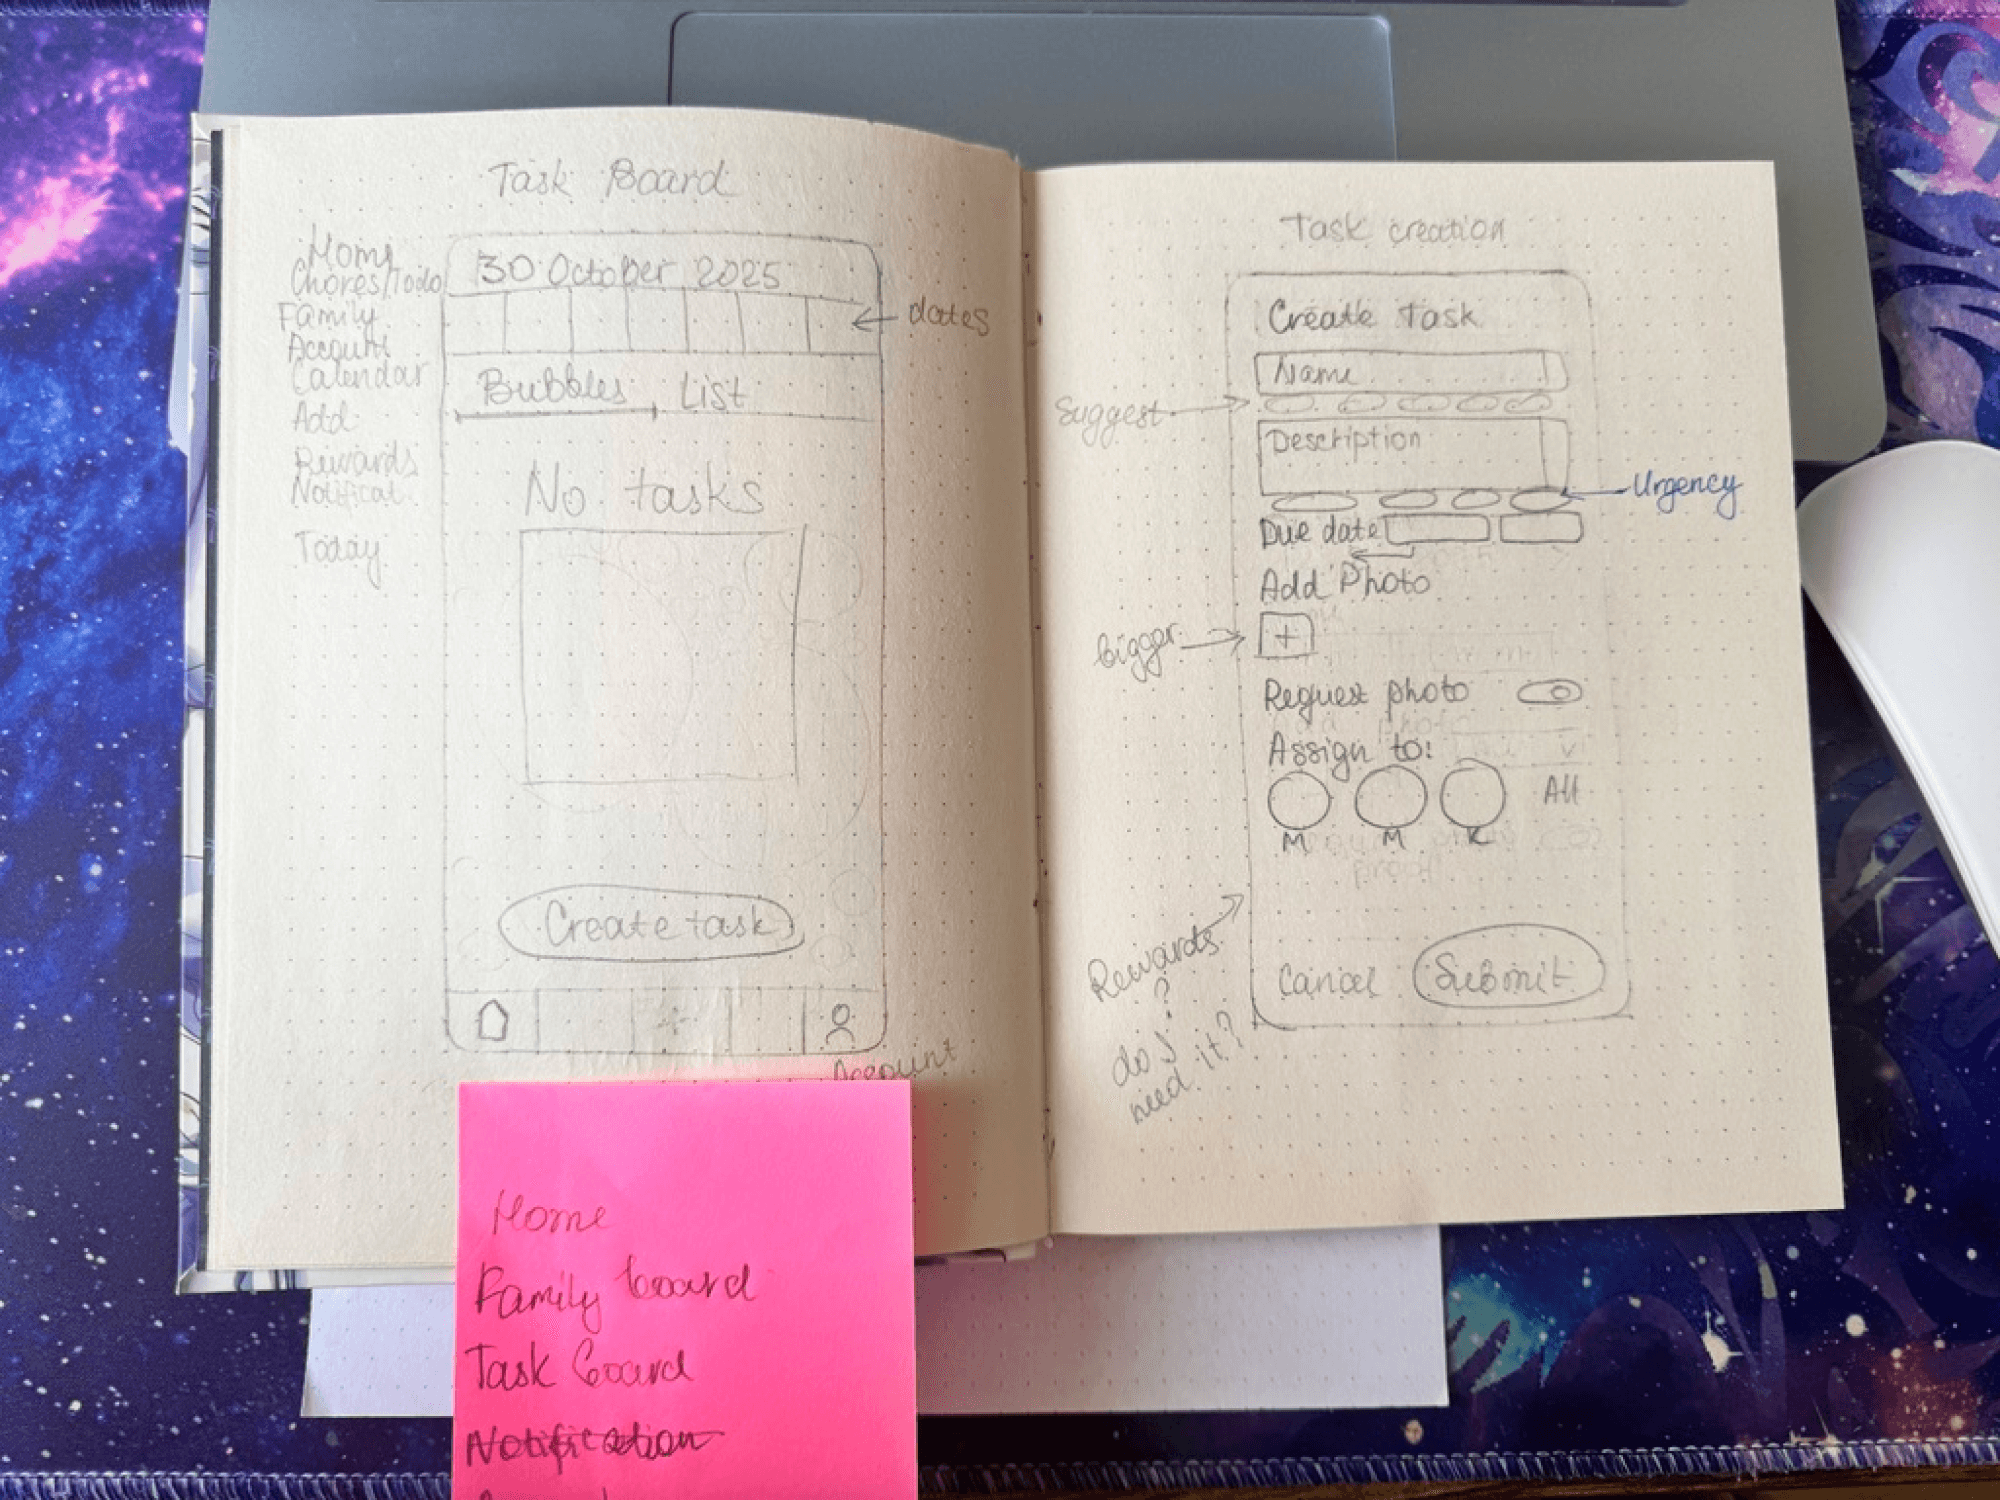 Task Board
Home
Chores/Todo
Family
Account
Calendar
Add
Rewards
Notificat.
Today
30 October 2025
dates
Bubbles List
No tasks
Create task
Account
Home
Family board
Task board
Notification
Task creation
Create Task
Name
Suggest
Description
Urgency
Due date
Add Photo
bigger
Request photo
Assign to:
All
M M K
proof
Rewards
?
do I
need it?
Cancel Submit